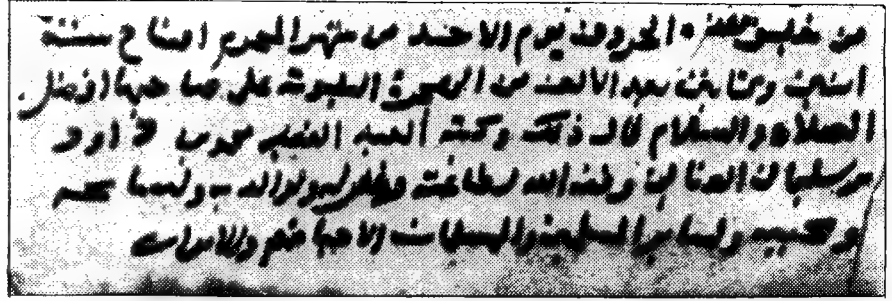 من خليص الحروف يوم الاحد من شهر المحرم افتتاح سنة
اثنين وثمانين بعد الالف من الهجرة النبوية على صاحبها افضل
الصلاة والسلام قال ذلك وكتبه العبد الفقير محمد بن داود
بن سليمان العناني وفقه الله لطاعته وغفر له ولوالديه ولمشايخه
ومحبيه ولسائر المسلمين والمسلمات الاحياء منهم والاموات